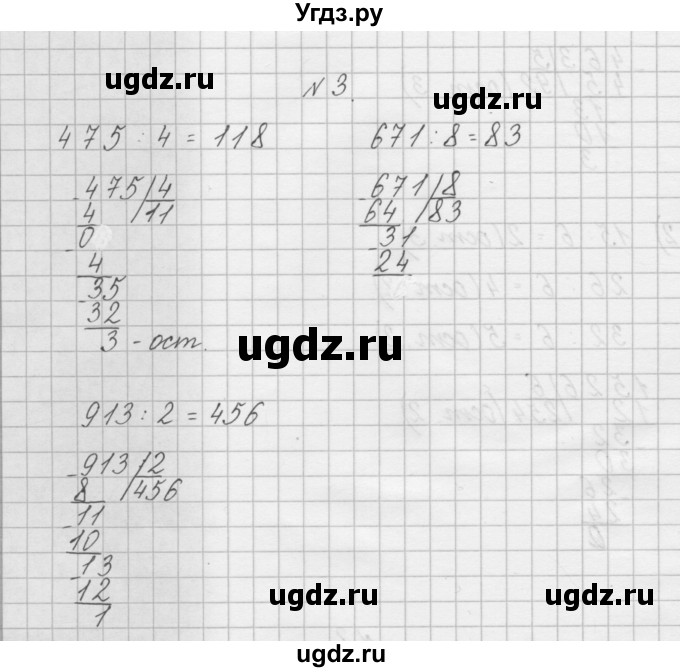 Угдз.ру
ugdz.ru
ugdz.ru
N 3.
475 : 4 = 118
671 : 8 = 83
- 475 | 4
4 | 11
- 0
4
- 35
32
3 - ост.
- 671 | 8
64 | 83
- 31
24
ugdz.ru
913 : 2 = 456
- 913 | 2
8 | 456
- 11
10
- 13
12
1
ugdz.ru
ugdz.ru
ugdz.ru